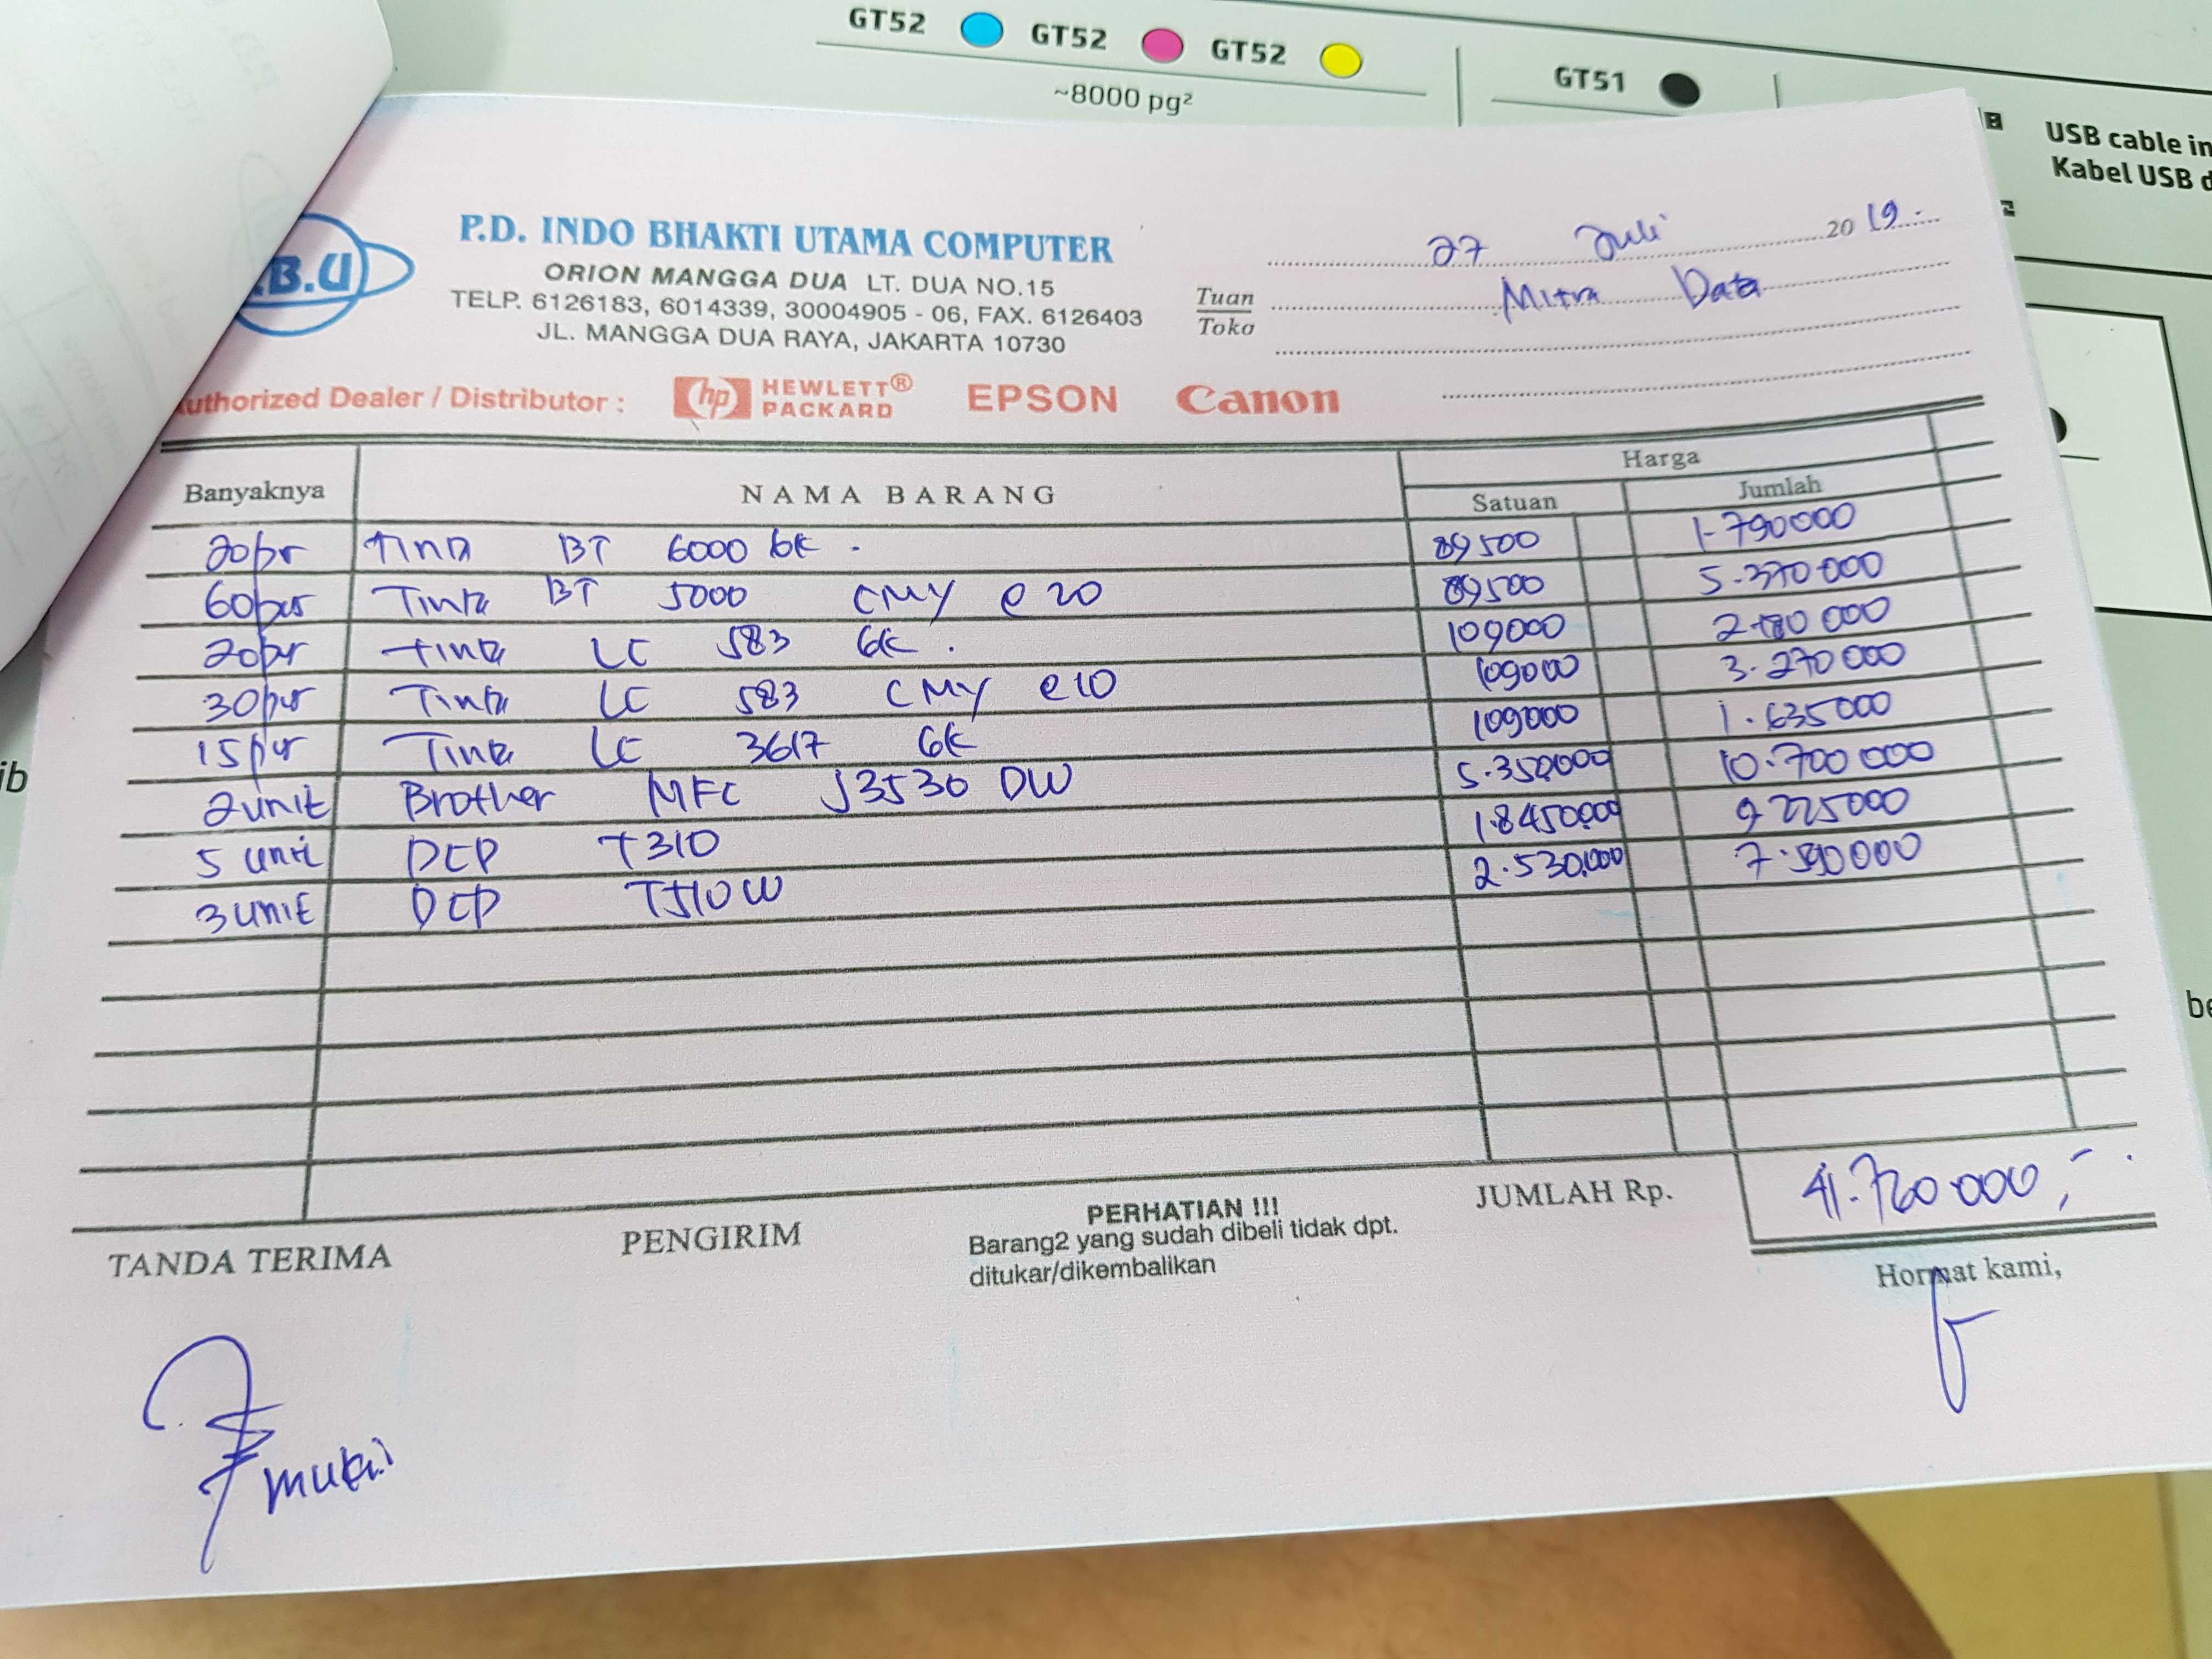 GT52 GT52 GT52 GT51
~8000 pg²
USB cable in
Kabel USB d
.B.U
P.D. INDO BHAKTI UTAMA COMPUTER
ORION MANGGA DUA LT. DUA NO.15
TELP. 6126183, 6014339, 30004905 - 06, FAX. 6126403
JL. MANGGA DUA RAYA, JAKARTA 10730
27 Juli 2019.
Tuan Mitra Data
Toko
uthorized Dealer / Distributor : hp HEWLETT® PACKARD EPSON Canon
Banyaknya NAMA BARANG Harga
Satuan Jumlah
20pr Tinta BT 6000 BK. 89500 1.790000
60pcs Tinta BT 5000 CMY @ 20 89500 5.370000
20pr Tinta LC 583 BK. 109000 2.180000
30pcs Tinta LC 583 CMY @ 10 109000 3.270000
15pcs Tinta LC 3617 BK 109000 1.635000
2unit Brother MFC J3530 DW 5.350.000 10.700000
5 unit DCP T310 1.8450.000 9.225000
3unit DCP T510W 2.530.000 7.590000
JUMLAH Rp. 41.760.000,-.
TANDA TERIMA PENGIRIM
PERHATIAN !!!
Barang2 yang sudah dibeli tidak dpt.
ditukar/dikembalikan
Hormat kami,